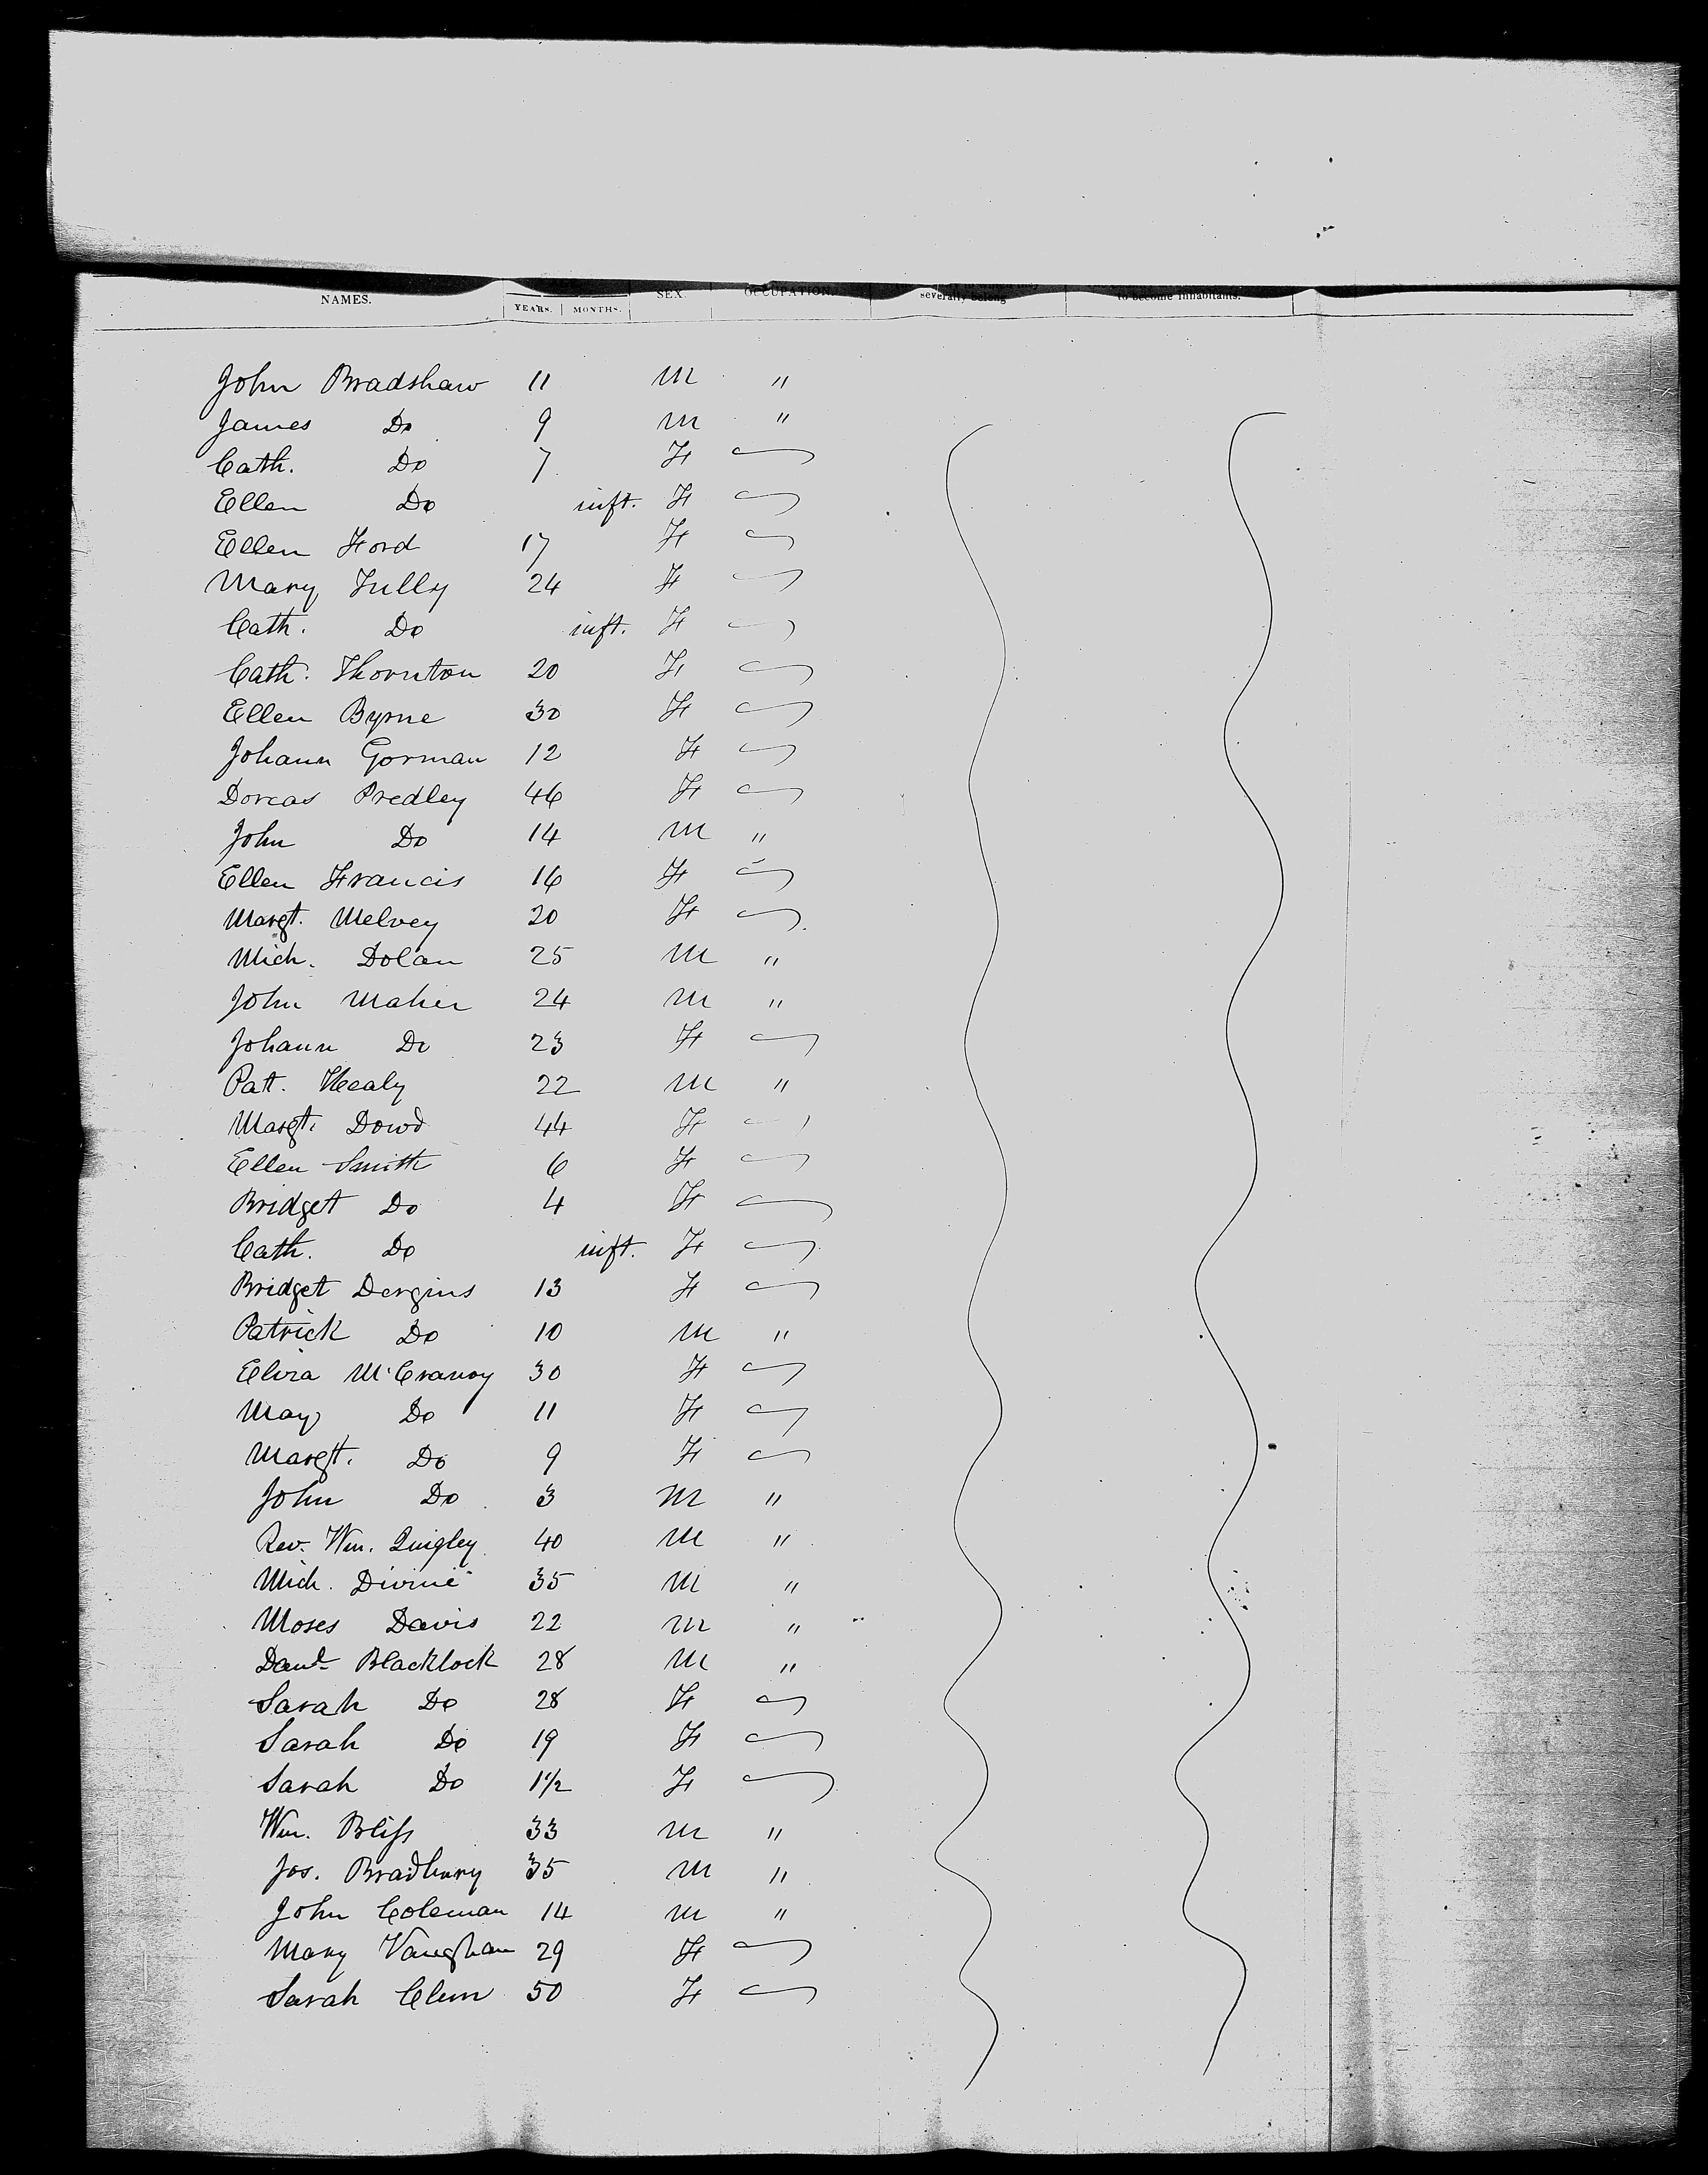 NAMES. YEARS. MONTHS. SEX. OCCUPATION. severally belong to become inhabitants.
John Bradshaw 11 M "
James Do 9 M "
Cath. Do 7 F
Ellen Do inft. F
Ellen Ford 17 F
Mary Tully 24 F
Cath. Do inft. F
Cath. Thornton 20 F
Ellen Byrne 30 F
Johann Gorman 12 F
Dorcas Predley 46 F
John Do 14 M "
Ellen Francis 16 F
Margt. Melvey 20 F
Mich. Dolan 25 M "
John Maher 24 M "
Johann Do 23 F
Patt. Healy 22 M "
Margt. Dowd 44 F
Ellen Smith 6 F
Bridget Do 4 F
Cath. Do inft. F
Bridget Dergins 13 F
Patrick Do 10 M "
Eliza McCranoy 30 F
Mary Do 11 F
Margt. Do 9 F
John Do 3 M "
Rev. Wm. Quigley 40 M "
Mich. Divine 35 M "
Moses Davis 22 M "
Danl. Blacklock 28 M "
Sarah Do 28 F
Sarah Do 19 F
Sarah Do 1 1/2 F
Wm. Bliss 33 M "
Jos. Bradbury 35 M "
John Coleman 14 M "
Mary Vaughan 29 F
Sarah 50 F